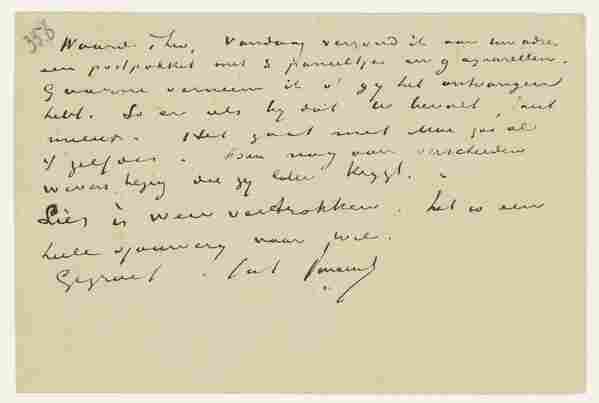 358
Waarde Theo, Vandaag verzend ik aan uw adres
een postpakket met 3 paneeltjes en 9 aquarellen.
Gaarne verneem ik of gij het ontvangen
hebt. Zo er als bij dat U bevalt, tant
mieux. Het gaat met Moe
't zelfde. Ben nog aan verscheiden
wevers bezig die gij later krijgt.
Lies is weer vertrokken. het is een
heele voor Wil.
Gegroet. tat Vincent